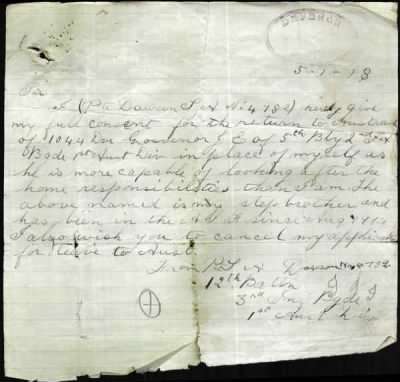 DEFENCE
5-1-18
Sir
I (Pte Dawson S A No 4782) hereby give
my full consent for the return to Australia
of 1044 Governor E of 5th 2nd F A
Bgde 1st Aust Div in place of myself as
he is more capable of looking after the
home responsibilities then I am. The
above named is my stepbrother and
has been in the A I F since Aug 1914
I also wish you to cancel my application
for leave to Aust.
From Dawson No 4782
12th Battn
3rd Inf Bgde
1st Aust Div